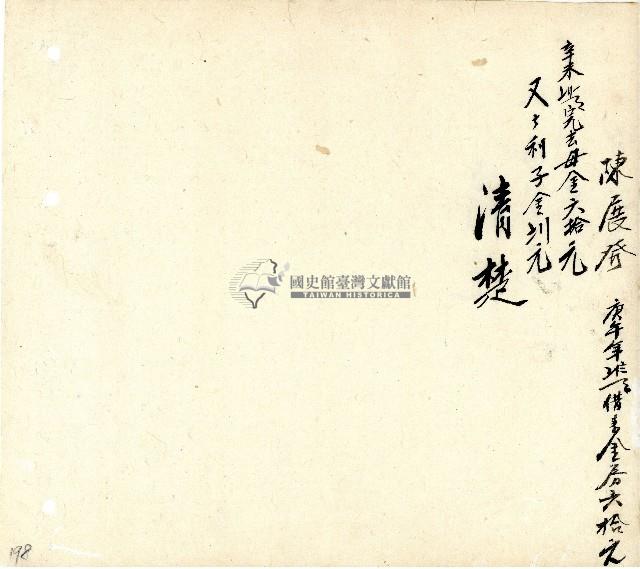 陳展發 庚午年 借去金员六拾元
辛未 完去母金六拾元
又々利子金 元
清楚
國史館臺灣文獻館
TAIWAN HISTORICA
198